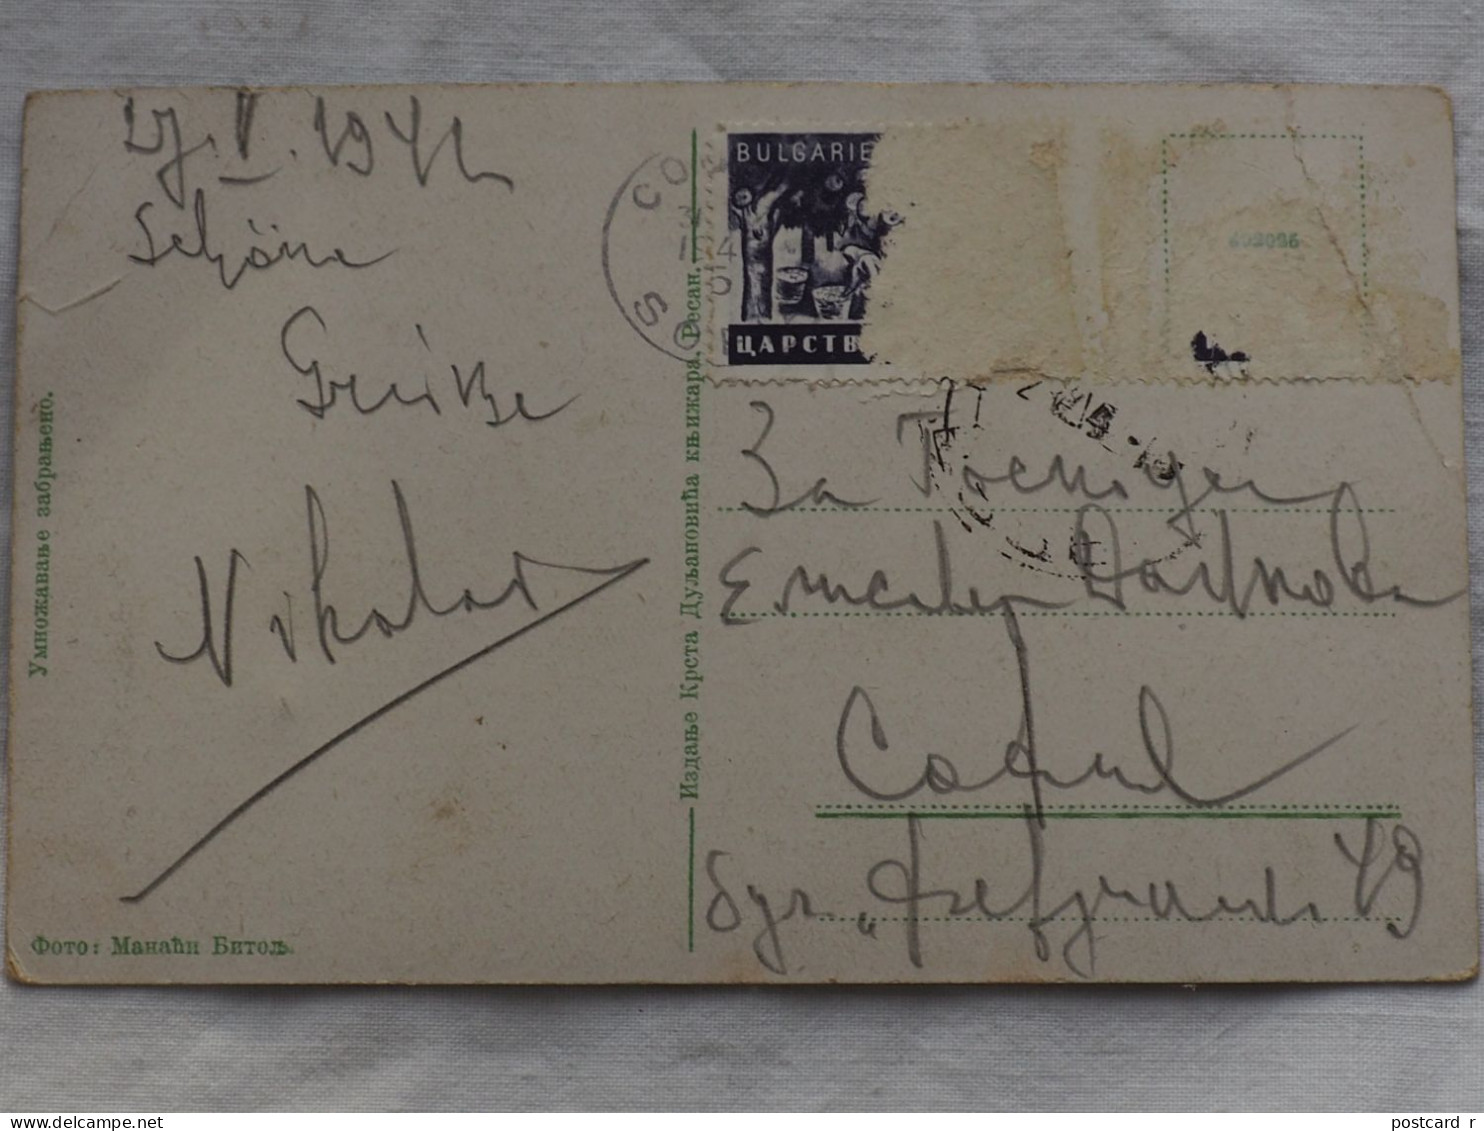 27.V.1941
Schöne
Grüße
Nikolai
Умножавање забрањено.
Фото: Манаћи Битољ.
Издање Крста Дуљановића књижара, Ресан.
BULGARIE
ЦАРСТВ
402025
За Госпожа
София
бул. "
49
postcard r